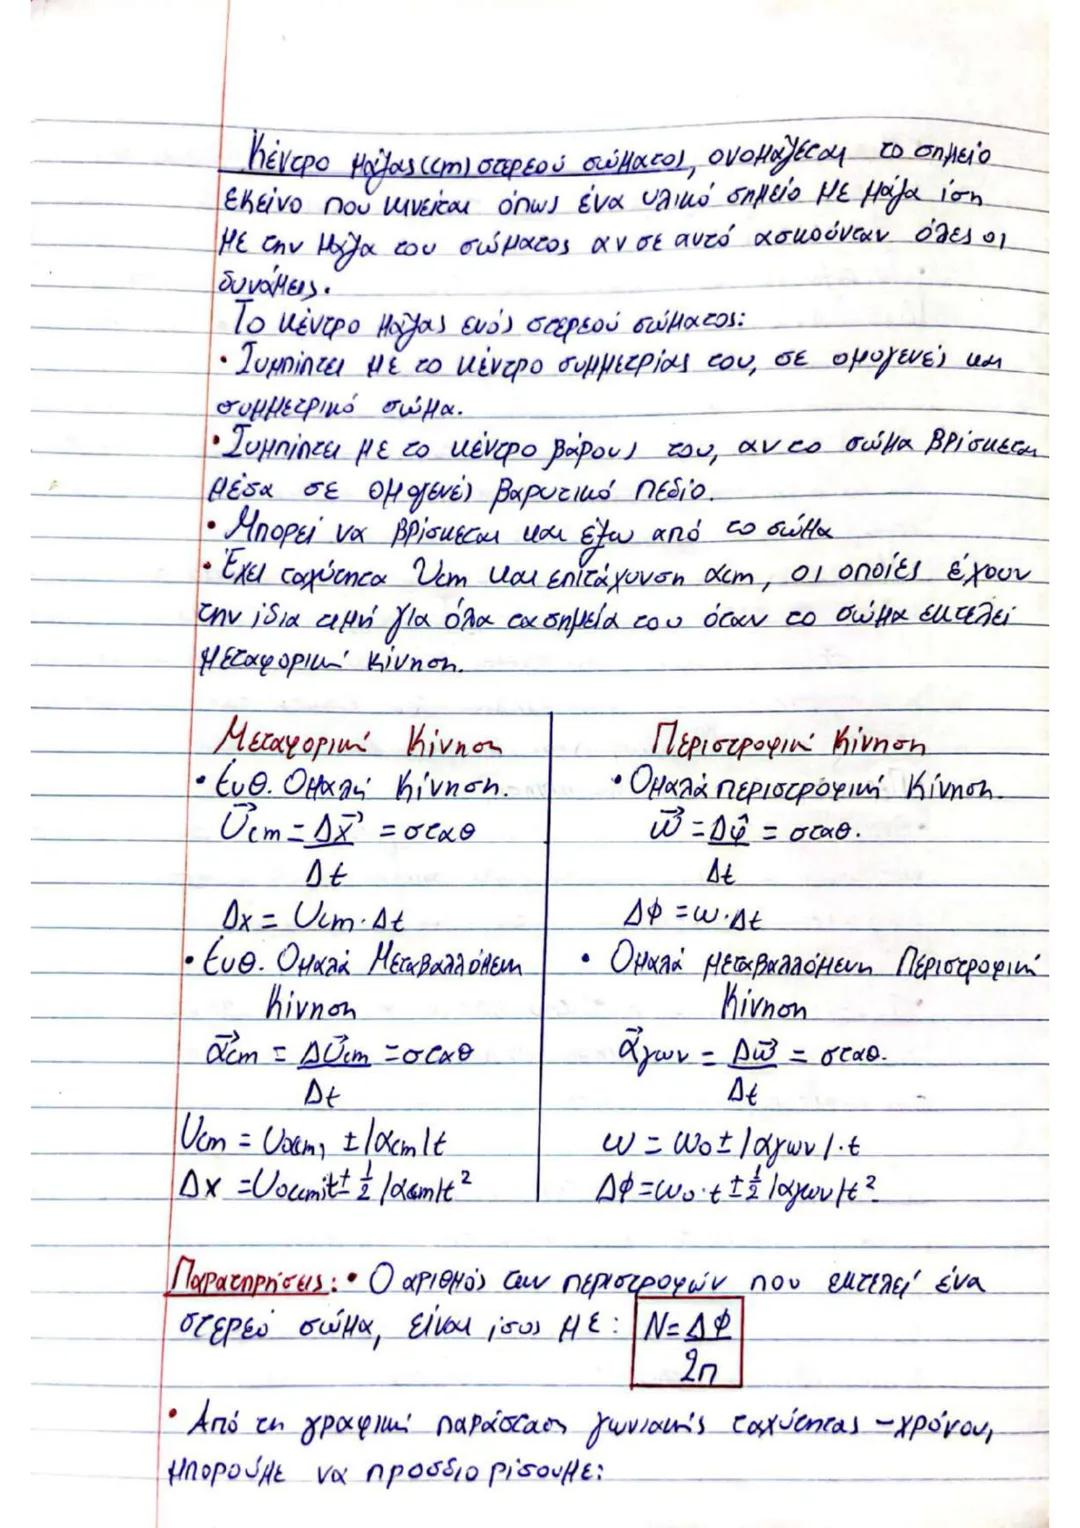 Κέντρο μάζας (cm) στερεού σώματος, ονομάζεται το σημείο
εκείνο που κινείται όπως ένα υλικό σημείο με μάζα ίση
με την μάζα του σώματος αν σε αυτό ασκούνταν όλες οι
δυνάμεις.
Το κέντρο μάζας ενός στερεού σώματος:
• Συμπίπτει με το κέντρο συμμετρίας του, σε ομογενές και
συμμετρικό σώμα.
• Συμπίπτει με το κέντρο βάρους του, αν το σώμα βρίσκεται
μέσα σε ομογενές βαρυτικό πεδίο.
• Μπορεί να βρίσκεται και έξω από το σώμα
• Έχει ταχύτητα Ucm και επιτάχυνση αcm, οι οποίες έχουν
την ίδια τιμή για όλα τα σημεία του όταν το σώμα εκτελεί
μεταφορική κίνηση.
Μεταφορική Κίνηση
• Ευθ. Ομαλή Κίνηση.
U⃗cm = Δx⃗ / Δt = σταθ
Δx = Ucm · Δt
• Ευθ. Ομαλά Μεταβαλλόμενη
Κίνηση
α⃗cm = ΔU⃗cm / Δt = σταθ
Ucm = U₀(cm) ± |αcm|t
Δx = U₀(cm)t ± ½ |αcm|t²
Περιστροφική Κίνηση
• Ομαλά περιστροφική Κίνηση.
ω⃗ = Δφ⃗ / Δt = σταθ.
Δφ = ω·Δt
• Ομαλά μεταβαλλόμενη Περιστροφική
Κίνηση
α⃗γων = Δω⃗ / Δt = σταθ.
ω = ω₀ ± |αγων|·t
Δφ = ω₀·t ± ½ |αγων|t²
Παρατηρήσεις: • Ο αριθμός των περιστροφών που εκτελεί ένα
στερεό σώμα, είναι ίσος με: N = Δφ / 2π
• Από τη γραφική παράσταση γωνιακής ταχύτητας - χρόνου,
μπορούμε να προσδιορίσουμε: